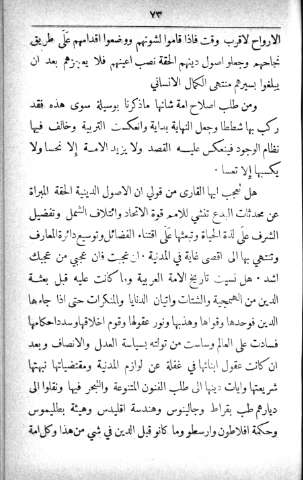 ٧٣
الارواح لاقرب وقت فاذا قاموا لشونهم ووضعوا اقدامهم على طريق
نجاحهم وجعلوا اصول دينهم الحقة نصب اعينهم فلا يعجزهم بعد ان
يبلغوا بسيرهم منتهى الكمال الانساني
ومن طلب اصلاح امة شانها ماذكرنا بوسيلة سوى هذه فقد
ركب بها شططا وجعل النهاية بداية وانعكست التربية وخالف فيها
نظام الوجود فينعكس عليه القصد ولا يزيد الامة إلا نحسا ولا
يكسبها إلا تعسا
هل تعجب ايها القارى من قولي ان الاصول الدينية الحقة المبراة
عن محدثات البدع تنشي للامم قوة الاتحاد وائتلاف الشمل وتفضيل
الشرف على لذة الحياة وتبعثها على اقتناء الفضائل وتوسيع دائرة المعارف
وتنتهي بها الى اقصى غاية في المدنية . ان عجبت فان عجبي من عجبك
اشد . هل نسيت تاريخ الامة العربية وما كانت عليه قبل بعثة
الدين من الهمجية والشتات واتيان الدنايا والمنكرات حتى اذا جاءها
الدين فوحدها وقواها وهذبها ونور عقولها وقوم اخلاقها وسدد احكامها
فسادت على العالم وساست من تولته بسياسة العدل والانصاف وبعد
ان كانت عقول ابنائها في غفلة عن لوازم المدنية ومقتضياتها نبهتها
شريعتها وايات دينها الى طلب الفنون المتنوعة والتبحر فيها ونقلوا الى
ديارهم طب بقراط وجالينوس وهندسة اقليدس وهيئة بطليموس
وحكمة افلاطون وارسطو وما كانو قبل الدين في شي من هذا وكل امة